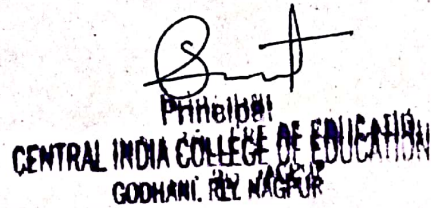 Principal
CENTRAL INDIA COLLEGE OF EDUCATION
GODHANI. RLY NAGPUR